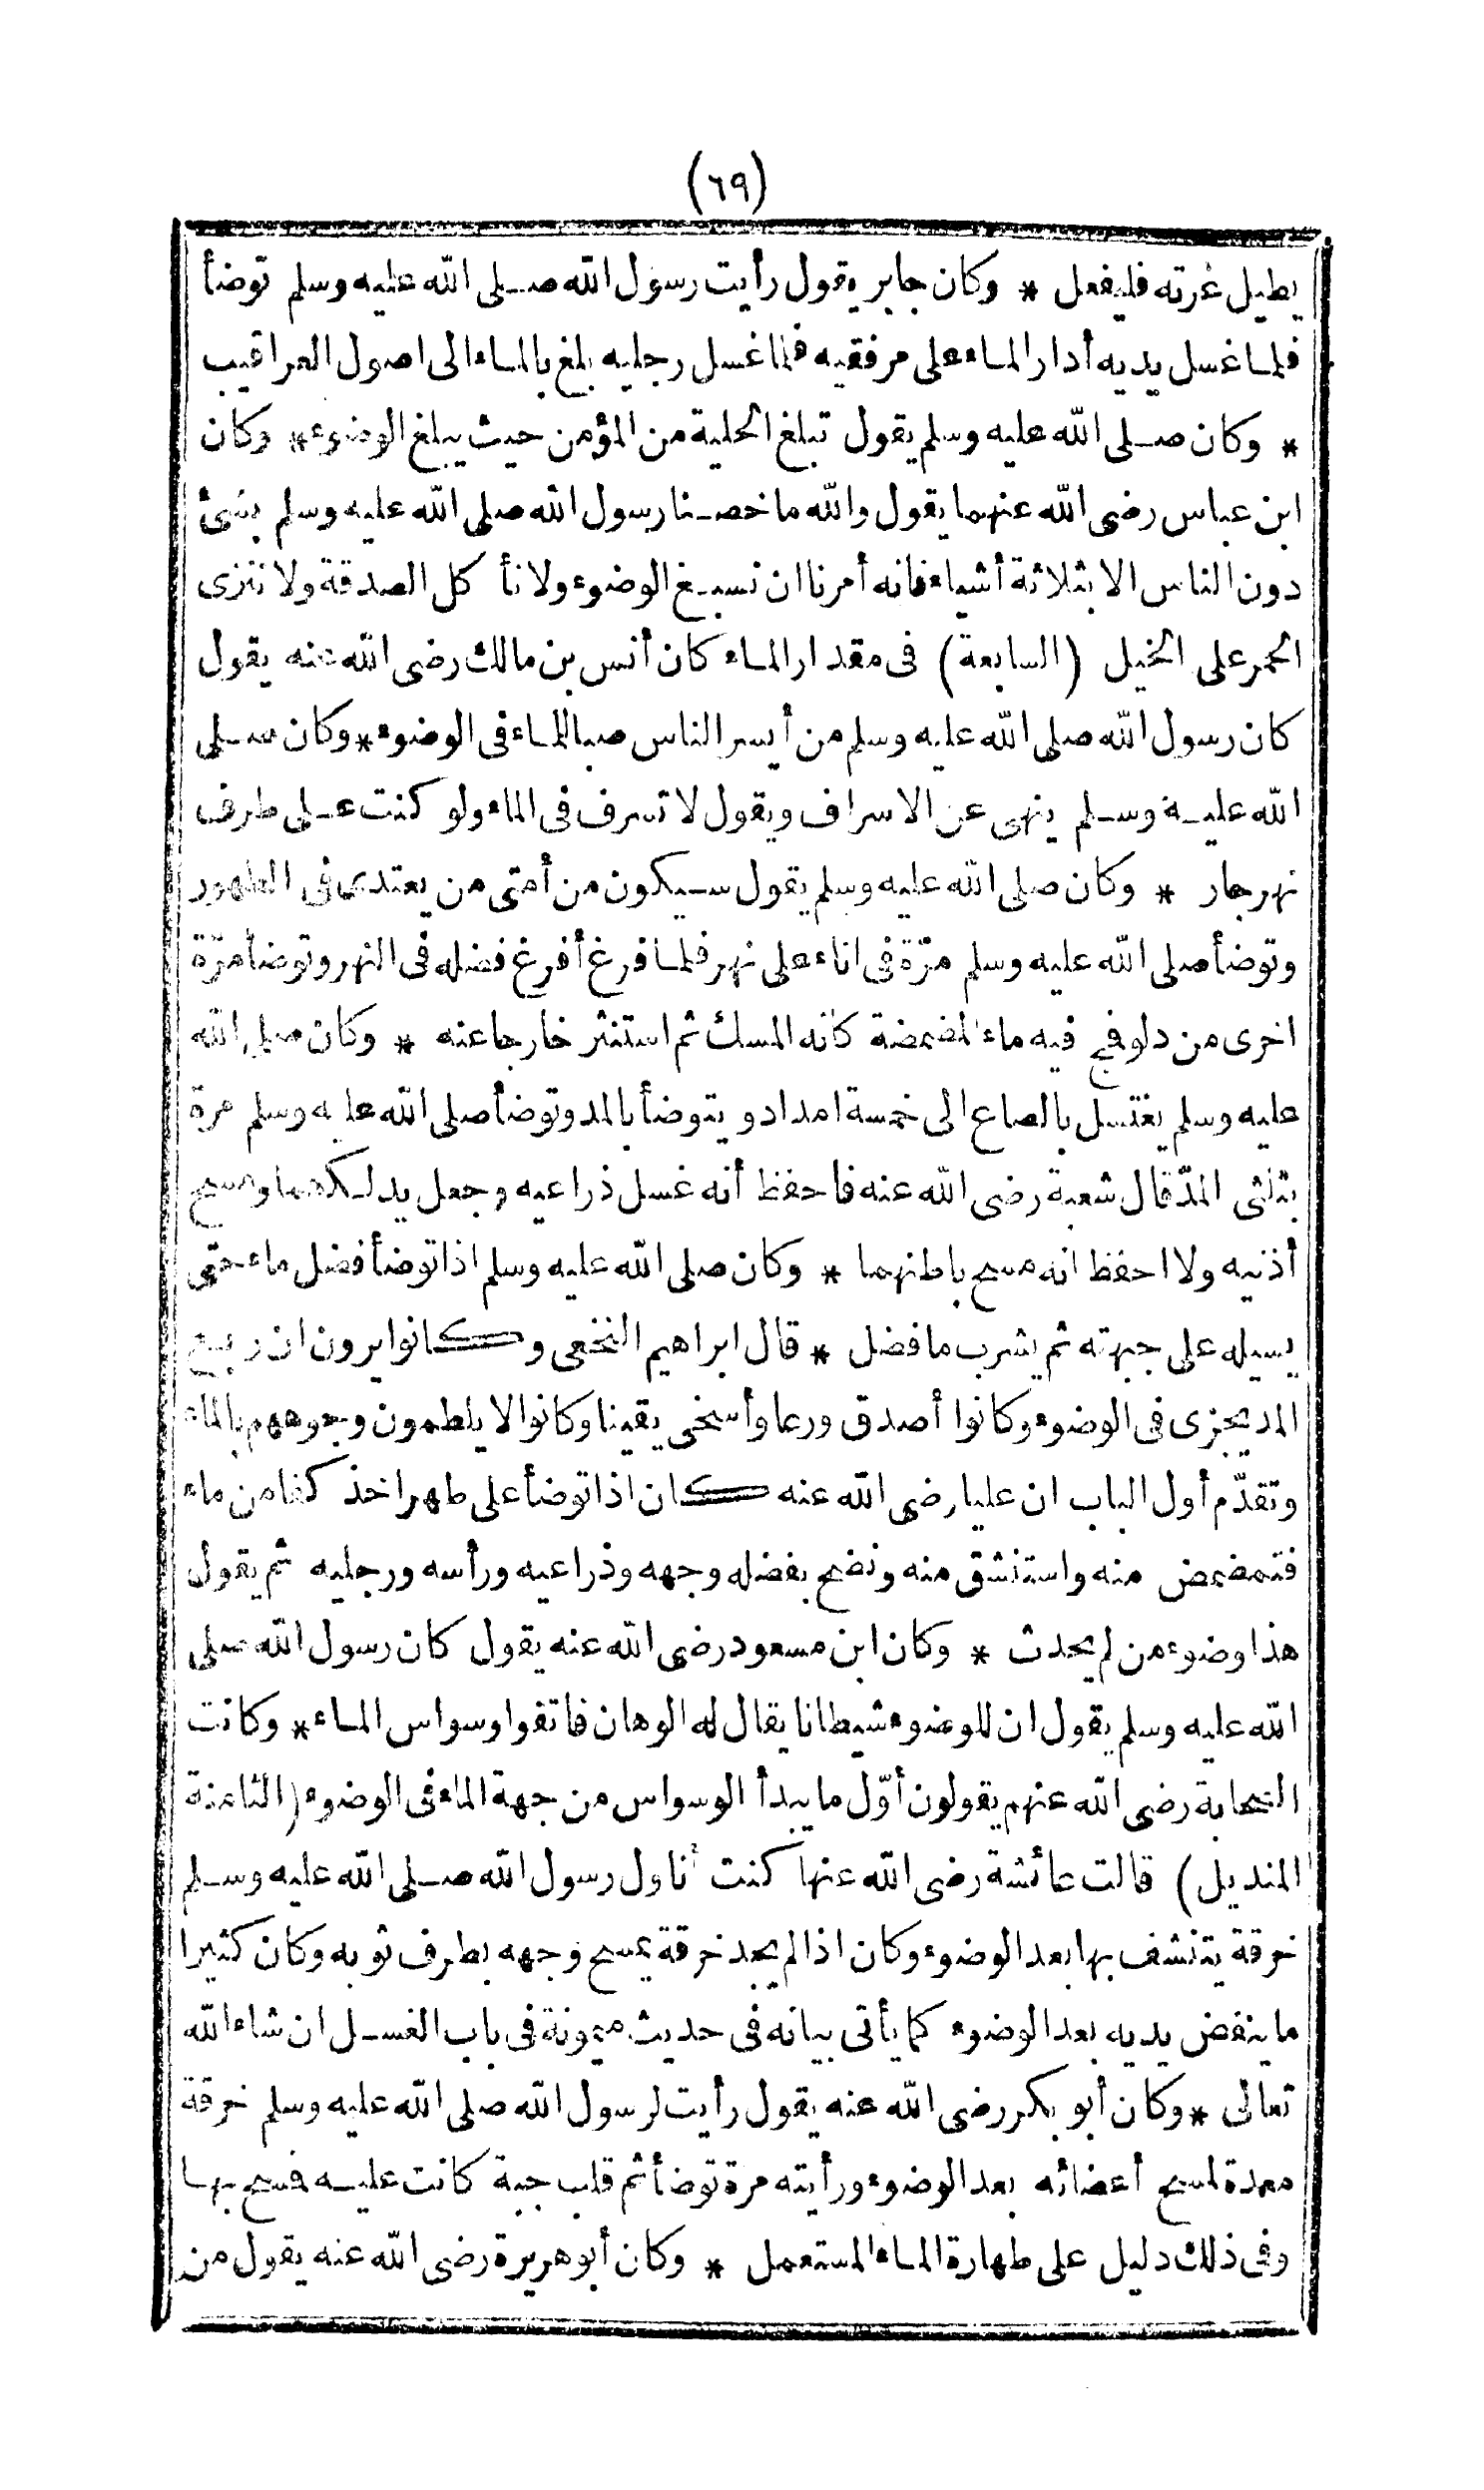 (٦٩)
يطيل غرته فليفعل * وكان جابر يقول رأيت رسول الله صلى الله عليه وسلم توضأ
فلما غسل يديه أدار الماء على مرفقيه فلما غسل رجليه بلغ بالماء الى اصول العراقيب
* وكان صلى الله عليه وسلم يقول تبلغ الحلية من المؤمن حيث يبلغ الوضوء * وكان
ابن عباس رضى الله عنهما يقول والله ما خصنا رسول الله صلى الله عليه وسلم بشئ
دون الناس الا بثلاثة أشياء فانه أمرنا ان نسبغ الوضوء ولا نأ كل الصدقة ولا ننزى
الحمر على الخيل (السابعة) فى مقدار الماء كان أنس بن مالك رضى الله عنه يقول
كان رسول الله صلى الله عليه وسلم من أيسر الناس صبا للماء فى الوضوء * وكان صلى
الله عليه وسلم ينهى عن الاسراف ويقول لا تسرف فى الماء ولو كنت على طرف
نهر جار * وكان صلى الله عليه وسلم يقول سيكون من أمتى من يعتدى فى الطهور
وتوضأ صلى الله عليه وسلم مرّة فى اناء على نهر فلما فرغ أفرغ فضله فى النهر وتوضأ مرّة
اخرى من دلو فمج فيه ماء المضمضة كأنه المسك ثم استنثر خارجا عنه * وكان صلى الله
عليه وسلم يغتسل بالصاع الى خمسة امداد و يتوضأ بالمد وتوضأ صلى الله عليه وسلم مرة
بثلثى المدّ قال شعبة رضى الله عنه فاحفظ أنه غسل ذراعيه وجعل يدلكهما ومسح
أذنيه ولا احفظ انه مسح باطنهما * وكان صلى الله عليه وسلم اذا توضأ فضل ماء حتى
يسيله على جبهته ثم يشرب ما فضل * قال ابراهيم النخعى وكانوا يرون ان ربع
المد يجزى فى الوضوء وكانوا أصدق ورعا وأسخى يقينا وكانوا لا يلطمون وجوههم بالماء
وتقدّم أول الباب ان عليا رضى الله عنه كان اذا توضأ على طهر اخذ كفا من ماء
فتمضمض منه واستنشق منه ونضح بفضله وجهه وذراعيه ورأسه ورجليه ثم يقول
هذا وضوء من لم يحدث * وكان ابن مسعود رضى الله عنه يقول كان رسول الله صلى
الله عليه وسلم يقول ان للوضوء شيطانا يقال له الوهان فاتقوا وسواس الماء * وكانت
الصحابة رضى الله عنهم يقولون أوّل ما يبدأ الوسواس من جهة الماء فى الوضوء (الثامنة
المنديل) قالت عائشة رضى الله عنها كنت أناول رسول الله صلى الله عليه وسلم
خرقة يتنشف بها بعد الوضوء وكان اذا لم يجد خرقة يمسح وجهه بطرف ثوبه وكان كثيرا
ما ينفض يديه بعد الوضوء كما يأتى بيانه فى حديث ميمونة فى باب الغسل ان شاء الله
تعالى * وكان أبو بكر رضى الله عنه يقول رأيت لرسول الله صلى الله عليه وسلم خرقة
معدة لمسح أعضائه بعد الوضوء ورأيته مرة توضأ ثم قلب جبة كانت عليه فمسح بها
وفى ذلك دليل على طهارة الماء المستعمل * وكان أبو هريرة رضى الله عنه يقول من